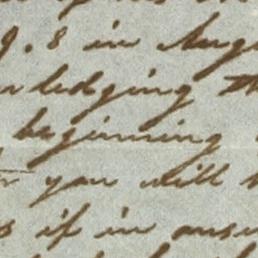 9.8 in Augu
ledging th
beginning
you will
s if in answ